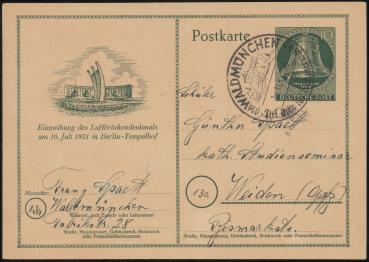 Postkarte
10
DEUTSCHE POST
WALDMÜNCHEN
Einweihung des Luftbrückendenkmals
am 10. Juli 1951 in Berlin-Tempelhof
Schüler
Günther Spaett
kath. Studienseminar
13a
Weiden (Opf)
Bismarckstr.
Straße, Hausnummer, Gebäudeteil, Stockwerk oder Postschließfachnummer
Absender: Franz Spaett
13a
Waldmünchen
Wohnort, auch Zustell- oder Leitpostamt
28
Straße, Hausnummer, Gebäudeteil, Stockwerk
oder Postschließfachnummer